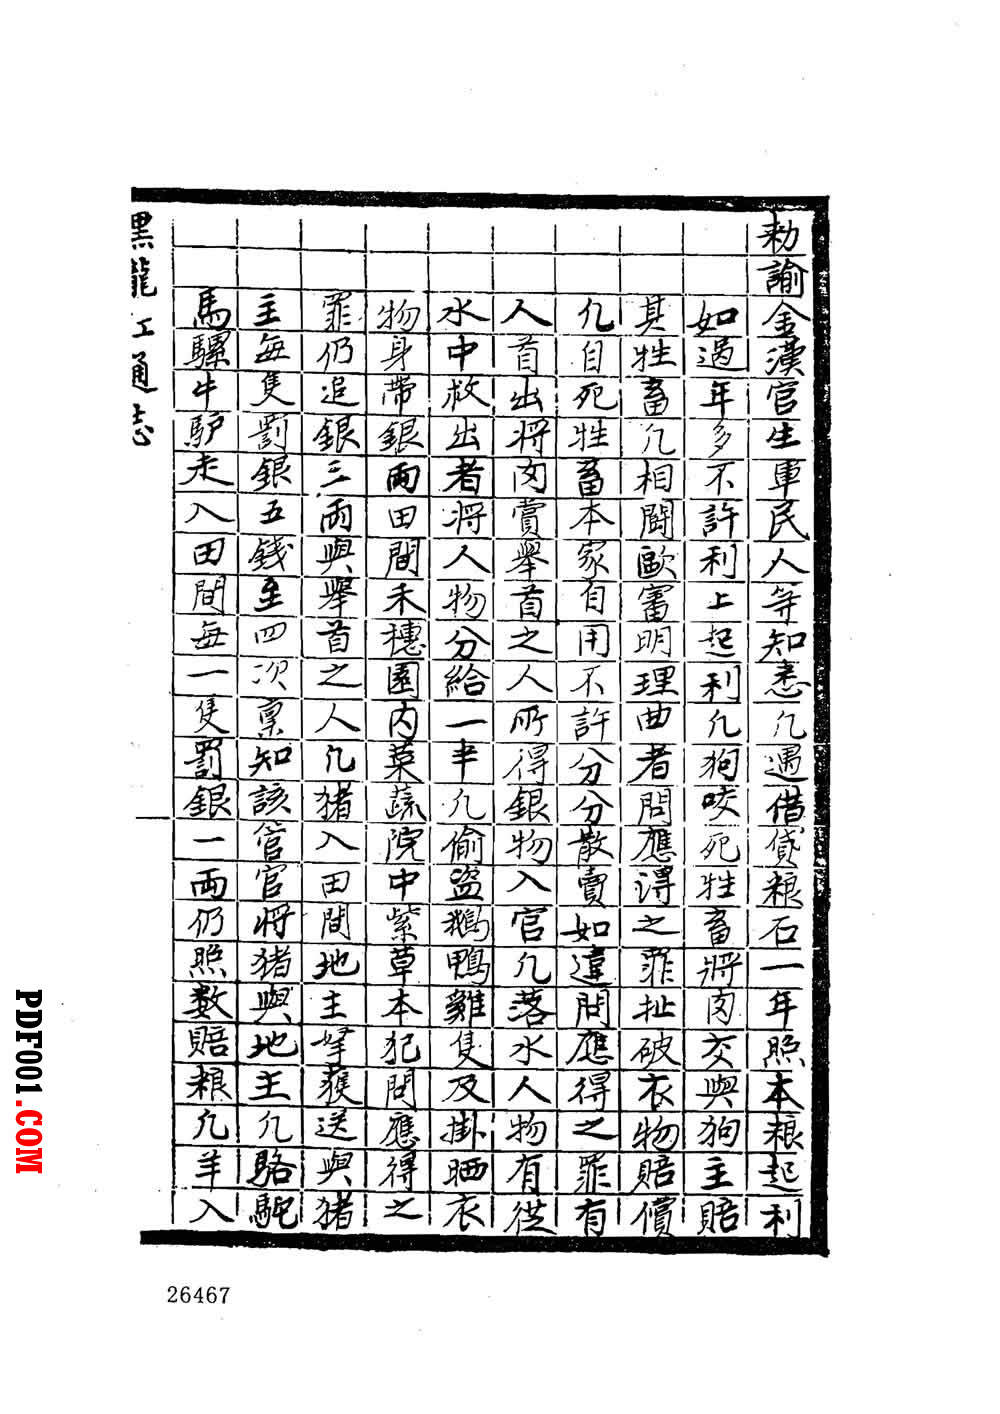 敕諭金漢官生軍民人等知悉凢遇借貸粮石一年照本粮起利
如過年多不許利上起利凢狗咬死牲畜將肉交與狗主賠
其牲畜凢相鬪毆審明理曲者問應得之罪扯破衣物賠償
凢自死牲畜本家自用不許分分散賣如違問應得之罪有
人首出將肉賞舉首之人所得銀物入官凢落水人物有從
水中救出者將人物分給一半凢偷盜鵝鴨雞隻及掛晒衣
物身帶銀兩田間禾穗園內菜蔬院中紫草本犯問應得之
罪仍追銀三兩與舉首之人凢猪入田間地主拏獲送與猪
主每隻罰銀五錢至四次禀知該管官將猪與地主凢駱駝
馬騾牛驴走入田間每一隻罰銀一兩仍照数賠粮凢羊入
黑龍江通志
26467
PDF001.COM